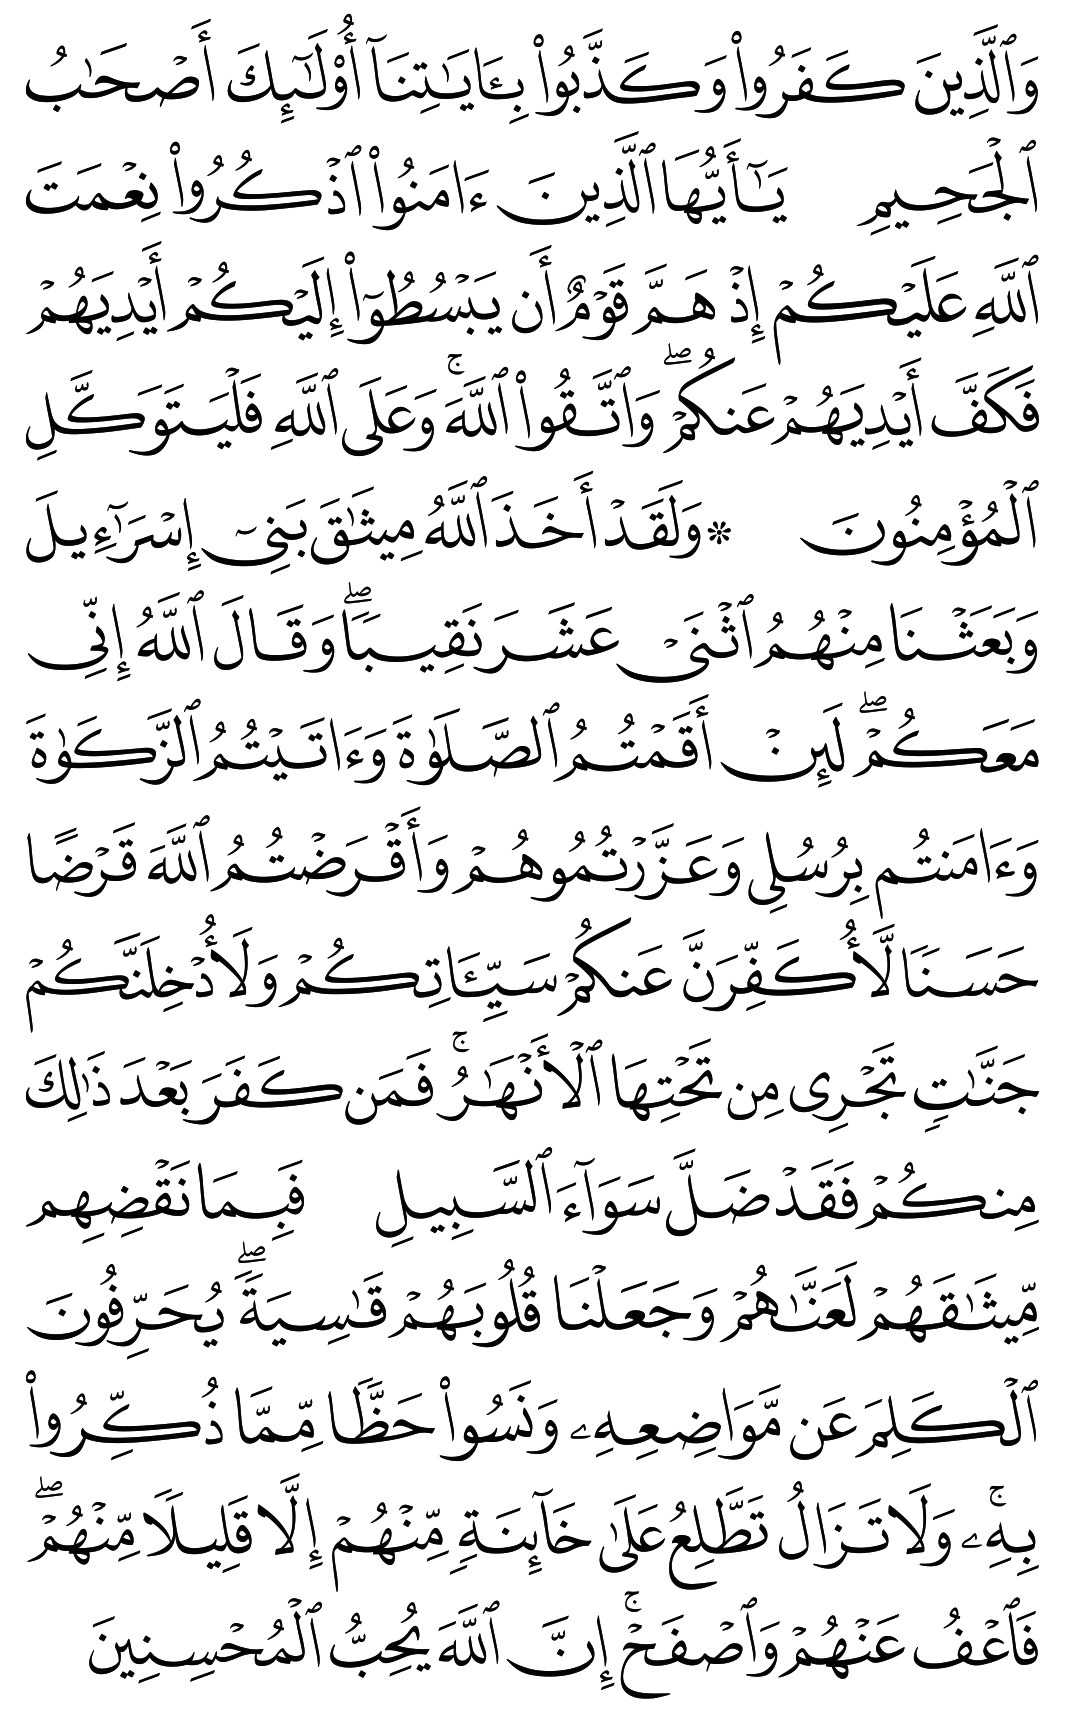 وَٱلَّذِينَ كَفَرُوا۟ وَكَذَّبُوا۟ بِـَٔايَـٰتِنَآ أُو۟لَـٰٓئِكَ أَصْحَـٰبُ
ٱلْجَحِيمِ يَـٰٓأَيُّهَا ٱلَّذِينَ ءَامَنُوا۟ ٱذْكُرُوا۟ نِعْمَتَ
ٱللَّهِ عَلَيْكُمْ إِذْ هَمَّ قَوْمٌ أَن يَبْسُطُوٓا۟ إِلَيْكُمْ أَيْدِيَهُمْ
فَكَفَّ أَيْدِيَهُمْ عَنكُمْ ۖ وَٱتَّقُوا۟ ٱللَّهَ ۚ وَعَلَى ٱللَّهِ فَلْيَتَوَكَّلِ
ٱلْمُؤْمِنُونَ * وَلَقَدْ أَخَذَ ٱللَّهُ مِيثَـٰقَ بَنِىٓ إِسْرَٰٓءِيلَ
وَبَعَثْنَا مِنْهُمُ ٱثْنَىْ عَشَرَ نَقِيبًا ۖ وَقَالَ ٱللَّهُ إِنِّى
مَعَكُمْ ۖ لَئِنْ أَقَمْتُمُ ٱلصَّلَوٰةَ وَءَاتَيْتُمُ ٱلزَّكَوٰةَ
وَءَامَنتُم بِرُسُلِى وَعَزَّرْتُمُوهُمْ وَأَقْرَضْتُمُ ٱللَّهَ قَرْضًا
حَسَنًا لَّأُكَفِّرَنَّ عَنكُمْ سَيِّـَٔاتِكُمْ وَلَأُدْخِلَنَّكُمْ
جَنَّـٰتٍ تَجْرِى مِن تَحْتِهَا ٱلْأَنْهَـٰرُ ۚ فَمَن كَفَرَ بَعْدَ ذَٰلِكَ
مِنكُمْ فَقَدْ ضَلَّ سَوَآءَ ٱلسَّبِيلِ فَبِمَا نَقْضِهِم
مِّيثَـٰقَهُمْ لَعَنَّـٰهُمْ وَجَعَلْنَا قُلُوبَهُمْ قَـٰسِيَةً ۖ يُحَرِّفُونَ
ٱلْكَلِمَ عَن مَّوَاضِعِهِۦ وَنَسُوا۟ حَظًّا مِّمَّا ذُكِّرُوا۟
بِهِۦ ۚ وَلَا تَزَالُ تَطَّلِعُ عَلَىٰ خَآئِنَةٍ مِّنْهُمْ إِلَّا قَلِيلًا مِّنْهُمْ ۖ
فَٱعْفُ عَنْهُمْ وَٱصْفَحْ ۚ إِنَّ ٱللَّهَ يُحِبُّ ٱلْمُحْسِنِينَ